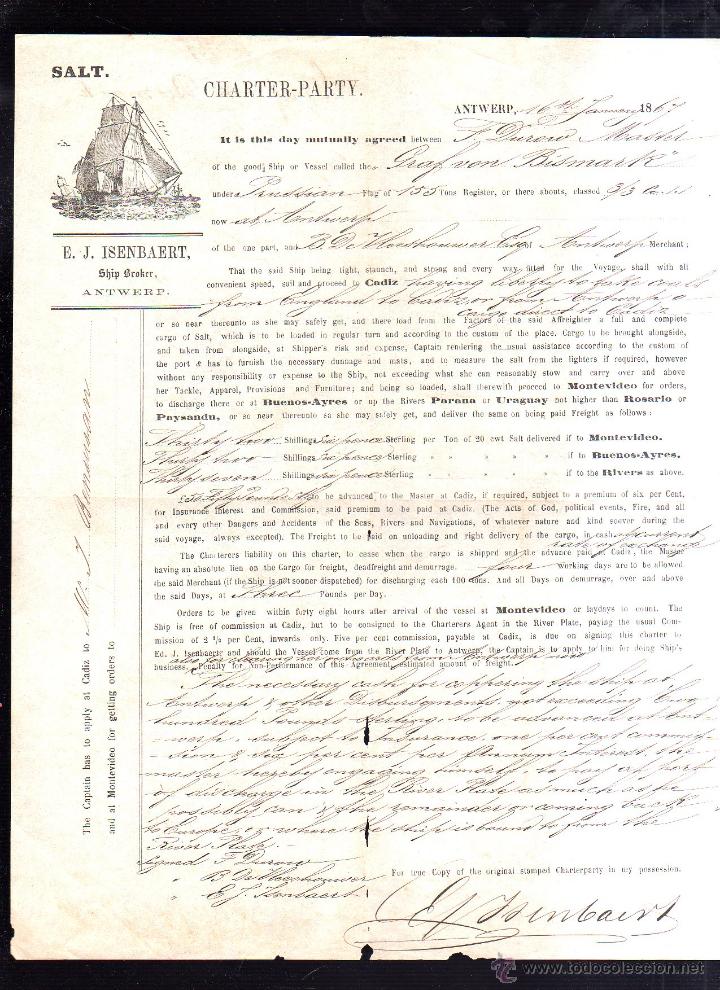 SALT.
CHARTER-PARTY.
ANTWERP, 16th January 1867
It is this day mutually agreed between F. Durow Master
of the good Ship or Vessel called the "Graf von Bismark"
under Prussian Flag of 153 Tons Register, or there abouts, classed 5/3
now at Antwerp
of the one part, and B. De Vleeshouwer Esq. of Antwerp Merchant;
E. J. ISENBAERT,
Ship Broker,
ANTWERP.
That the said Ship being tight, staunch, and strong and every way fitted for the Voyage, shall with all
convenient speed, sail and proceed to Cadiz having liberty to take coals
from England to Cadiz or from Antwerp a
cargo direct to Cadiz
or so near thereunto as she may safely get, and there load from the Factors of the said Affreighter a full and complete
cargo of Salt, which is to be loaded in regular turn and according to the custom of the place. Cargo to be brought alongside,
and taken from alongside, at Shipper's risk and expense, Captain rendering the usual assistance according to the custom of
the port & has to furnish the necessary dunnage and mats, and to measure the salt from the lighters if required, however
without any responsibility or expense to the Ship, not exceeding what she can reasonably stow and carry over and above
her Tackle, Apparel, Provisions and Furniture; and being so loaded, shall therewith proceed to Montevideo for orders,
to discharge there or at Buenos-Ayres or up the Rivers Parana or Uraguay not higher than Rosario or
Paysandu, or so near thereunto as she may safely get, and deliver the same on being paid Freight as follows:
Thirty two Shillings Six pence Sterling per Ton of 20 cwt Salt delivered if to Montevideo.
Thirty two Shillings Six pence Sterling " " " " " if to Buenos-Ayres.
Thirty seven Shillings six pence Sterling " " " " " if to the Rivers as above.
Fifty Pounds Stg to be advanced to the Master at Cadiz, if required, subject to a premium of six per Cent,
for Insurance Interest and Commission, said premium to be paid at Cadiz. (The Acts of God, political events, Fire, and all
and every other Dangers and Accidents of the Seas, Rivers and Navigations, of whatever nature and kind soever during the
said voyage, always excepted). The Freight to be paid on unloading and right delivery of the cargo, in cash at current
rate of exchange
The Charterers liability on this charter, to cease when the cargo is shipped and the advance paid at Cadiz, the Master
having an absolute lien on the Cargo for freight, deadfreight and demurrage. four working days are to be allowed
the said Merchant (if the Ship is not sooner dispatched) for discharging each 100 tons. And all Days on demurrage, over and above
the said Days, at Three Pounds per Day.
Orders to be given within forty eight hours after arrival of the vessel at Montevideo or laydays to count. The
Ship is free of commission at Cadiz, but to be consigned to the Charterers Agent in the River Plate, paying the usual Com-
mission of 2 % per Cent, inwards only. Five per cent commission, payable at Cadiz, is due on signing this charter to
Ed. J. Isenbaert and should the Vessel come from the River Plate to Antwerp, the Captain is to apply to him for doing Ship's
also for clearing her outwards from Antwerp now
business. Penalty for Non-Performance of this Agreement, estimated amount of freight.
The necessary cash for coppering the ship at
Antwerp & other Disbursements, not exceeding Two
hundred Pounds Sterling, to be advanced at Ant-
werp, subject to Insurance, one per cent commis-
sion & six per cent per Annum Interest, the
master hereby engaging himself to pay at port
of discharge in the River Plate as much as he
possibly can & the remainder on coming back
to Europe or where the ship is bound to from the
River Plate.
signed F. Durow
" B. De Vleeshouwer
" E. J. Isenbaert
For true Copy of the original stamped Charterparty in my possession.
E J Isenbaert
The Captain has to apply at Cadiz to
and at Montevideo for getting orders to
www.todocoleccion.net